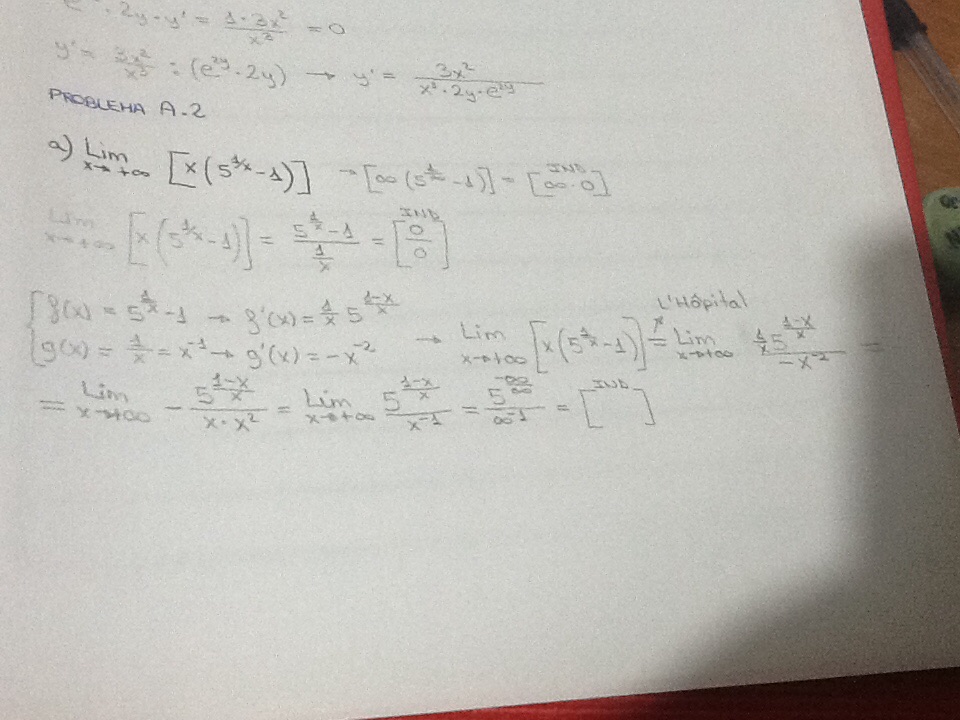 · 2y · y' = 1·3x²/x³ = 0
y' = 3x²/x³ : (e^2y · 2y) → y' = 3x²/(x³ · 2y · e^2y)
PROBLEMA A.2
a) Lim x→+∞ [x(5^1/x - 1)] → [∞(5^1/∞ - 1)] = [∞·0] IND
Lim x→+∞ [x(5^1/x - 1)] = (5^(1/x) - 1)/(1/x) = [0/0] IND
L'Hôpital
{f(x) = 5^(1/x) - 1 → f'(x) = 1/x 5^((1-x)/x)
g(x) = 1/x = x^-1 → g'(x) = -x^-2 → Lim x→+∞ [x(5^(1/x) - 1)] = Lim x→+∞ (1/x 5^((1-x)/x))/(-x^-2) =
= Lim x→+∞ - 5^((1-x)/x)/(x·x²) = Lim x→+∞ 5^((1-x)/x)/x^-1 = 5^(-∞/∞)/∞^-1 = [ ] IND